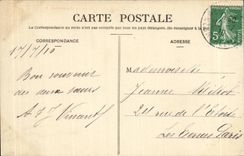 CARTE POSTALE
La Correspondance au recto n'est pas acceptée par tous les pays étrangers. (Se renseigner à la Poste)
CORRESPONDANCE
ADRESSE
17/7/10
Bon souvenir
des deux sœurs
Mademoiselle
Jeanne
24 rue de l'Etoile
Les Ternes Paris
5